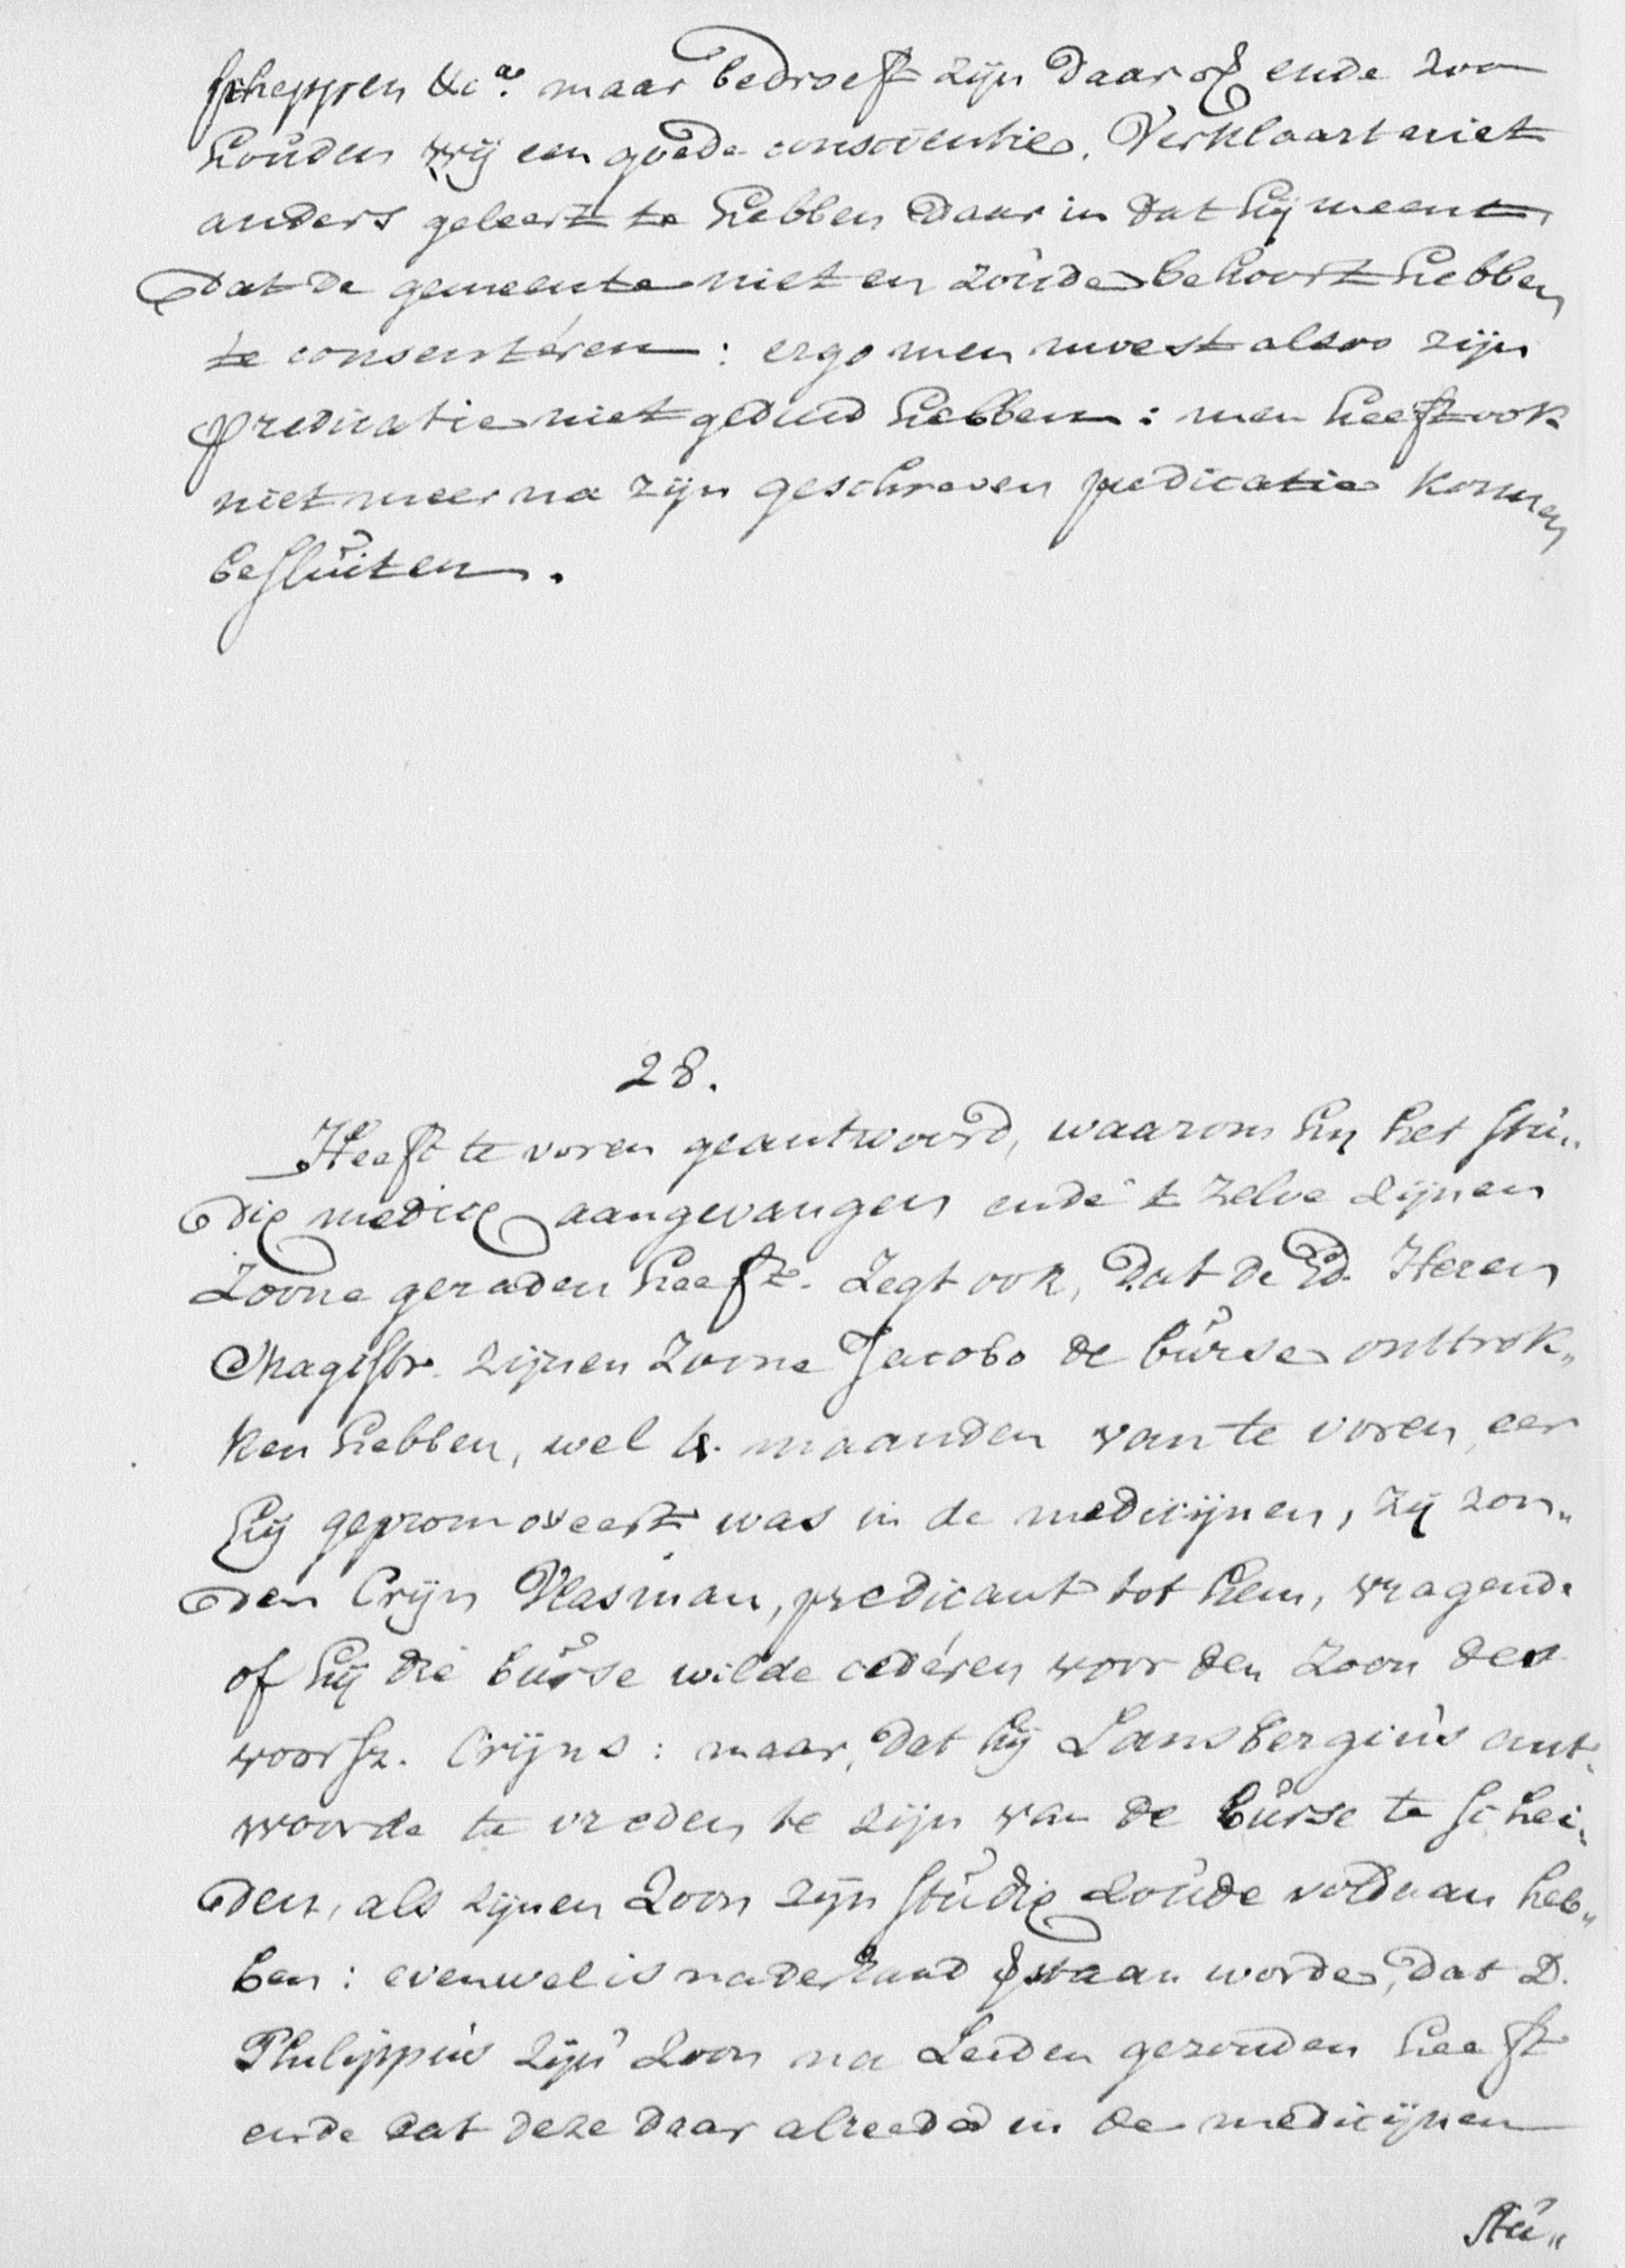 scheppen &c.a maar bedroeft zijn daar of ende zoo
houden wij een goede conscientie. Verklaart niet
anders geleert te hebben daar in dat hij meent
dat de gemeente niet en zoude behoort hebben
te consentéren : ergo men moest alsoo zijn
predicatie niet geduid hebben : men heeft ook
niet meer na zijn geschreven predicatie konnen
besluiten.
28.
Heeft te voren geantwoord, waarom hij het stu„
die medice aangevangen ende t zelve zijnen
Zoone geraden heeft. Zegt ook, dat de Ed. Heren
Magistr. zijnen Zoone Jacobo de burse onttrok„
ken hebben, wel 4. maanden van te voren, eer
hij gepromoveert was in de medicijnen, zij zon„
den Crijn Vlasman, predicant tot hem, vragende
of hij die burse wilde cedéren voor den Zoon des
voorsz. Crijns : maar, dat hij Lansbergius ant„
woorde te vreden te zijn van de burse te schei„
den, als zijnen Zoon zijn studie zoude voldaan heb„
ben : evenwel is naderhand verstaan worden, dat D.
Philippus zijn Zoon na Leiden gezonden heeft
ende dat deze daar alreeds in de medicijnen
stu„